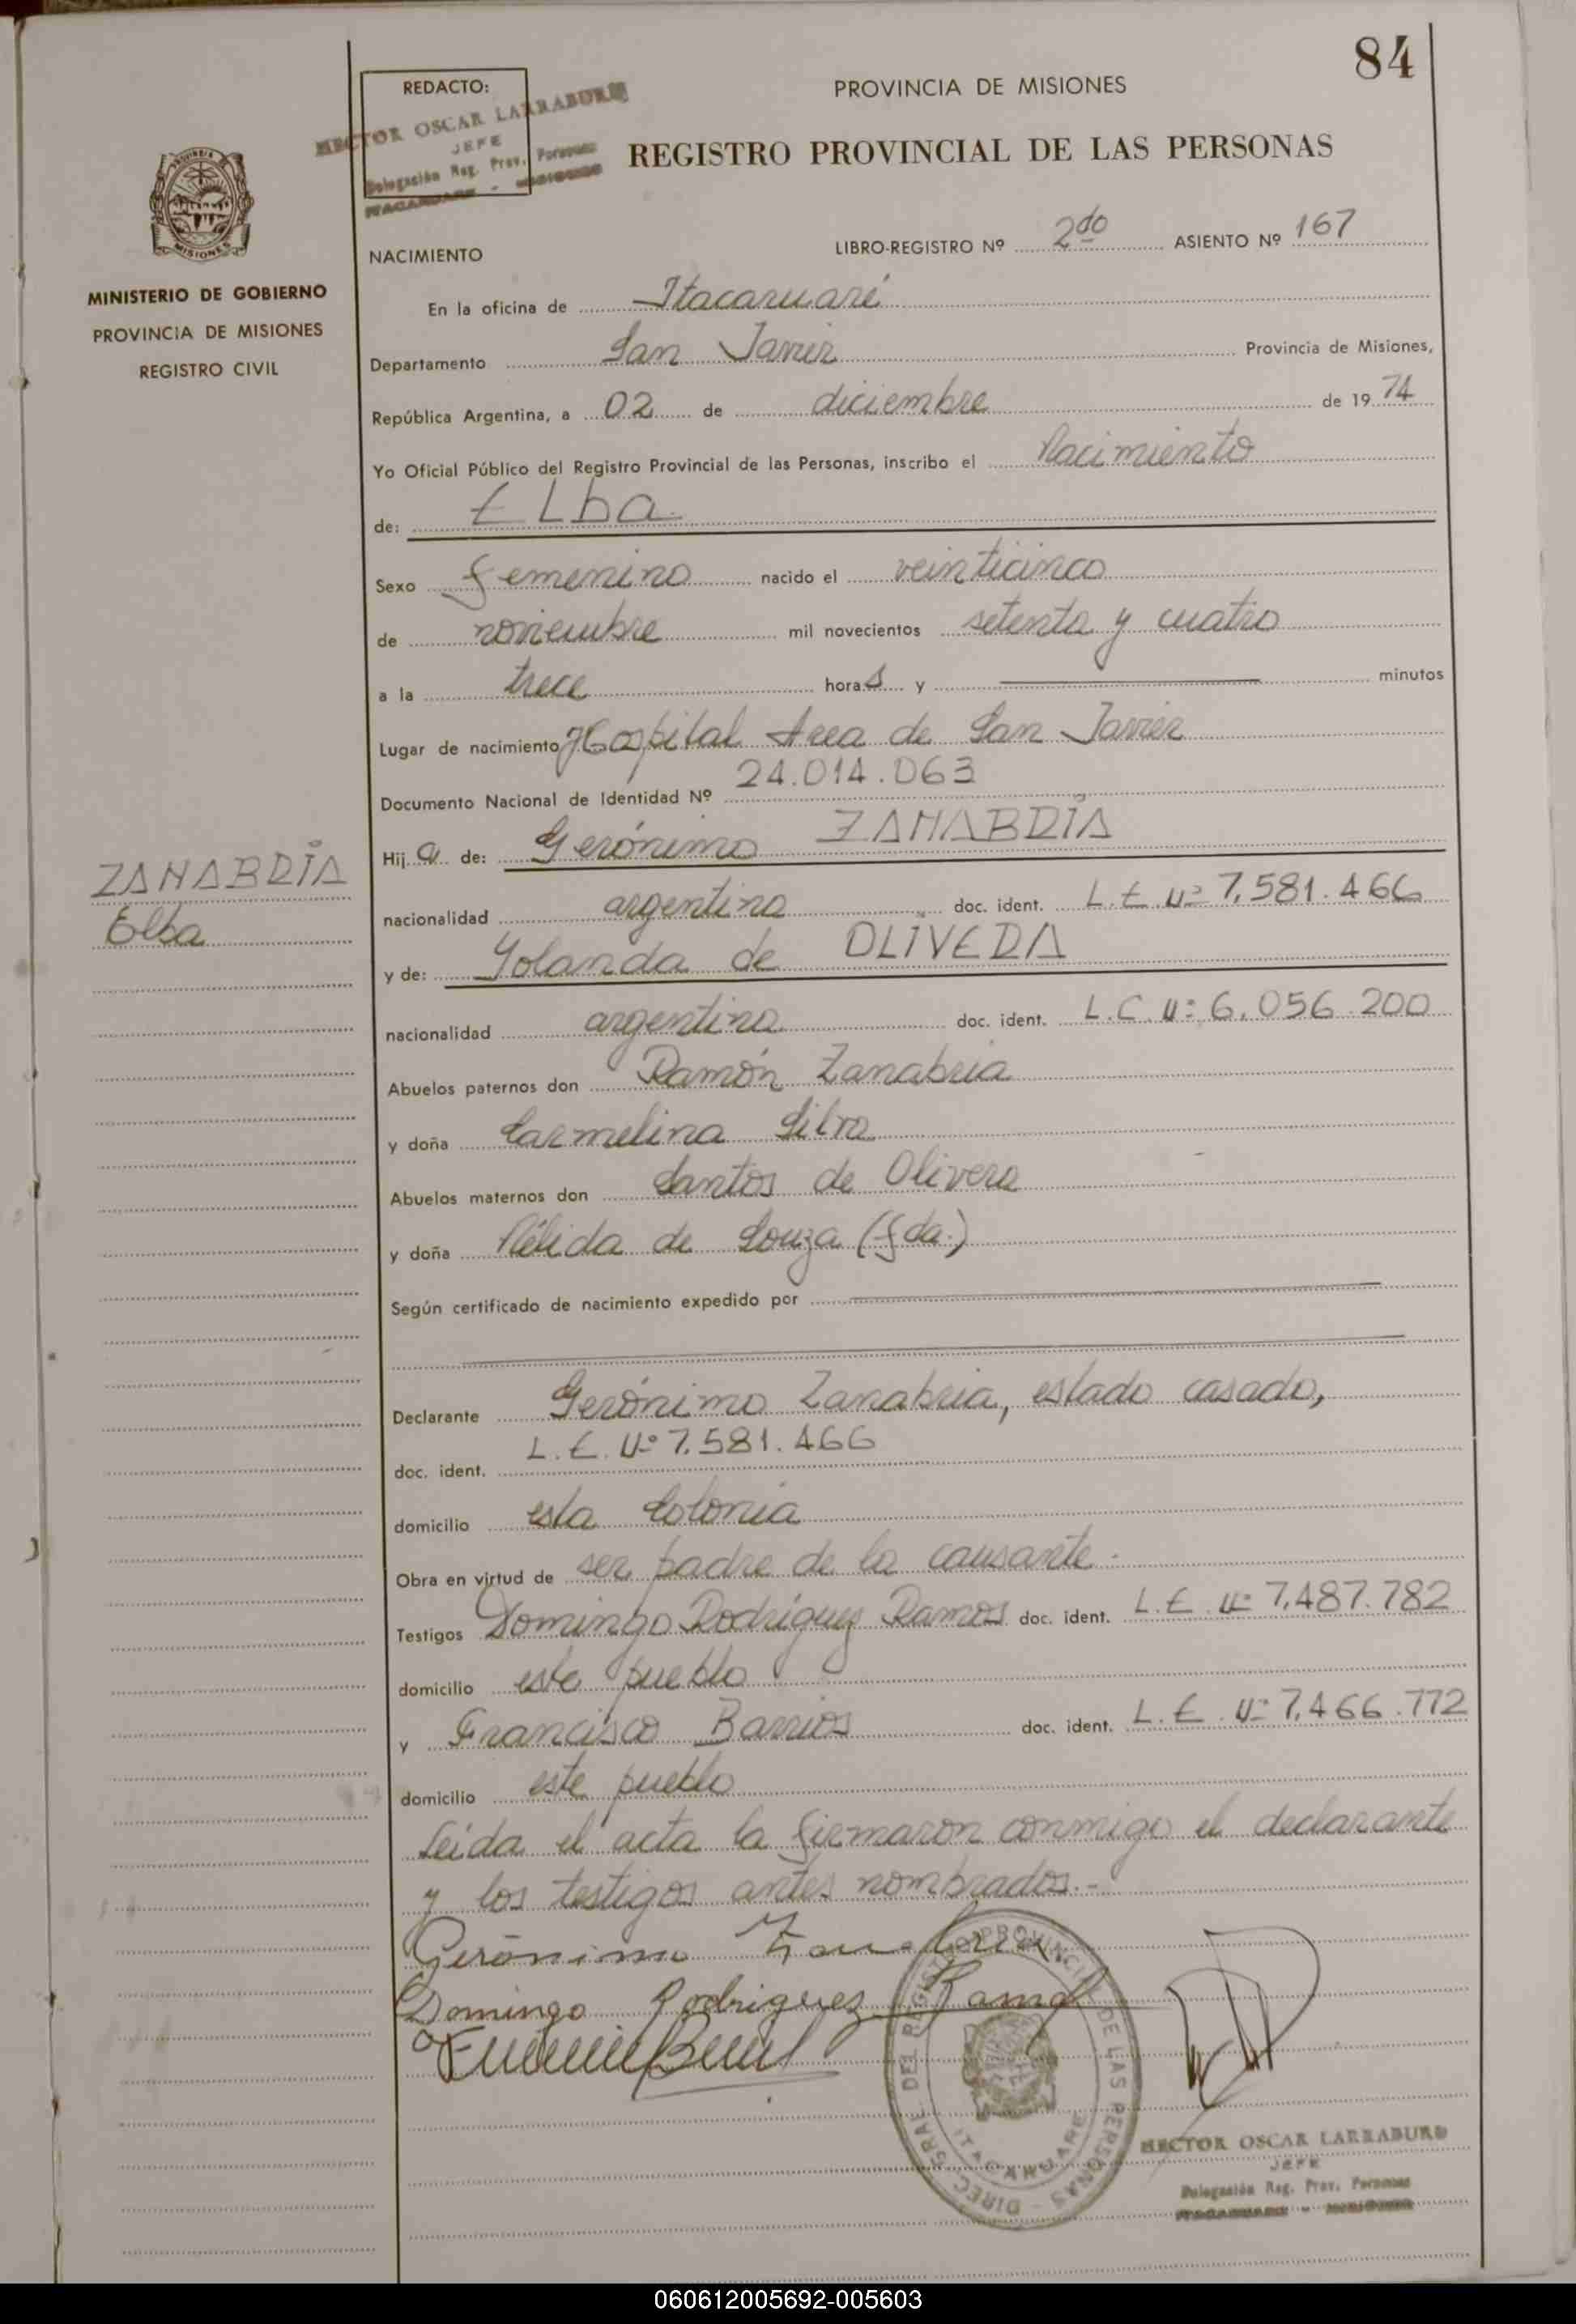 84
REDACTO:
HECTOR OSCAR LARRABURU
JEFE
Delegación Reg. Prov. Personas
ITACARUARE - MISIONES
PROVINCIA DE MISIONES
REGISTRO PROVINCIAL DE LAS PERSONAS
MISIONES
MINISTERIO DE GOBIERNO
PROVINCIA DE MISIONES
REGISTRO CIVIL
NACIMIENTO LIBRO-REGISTRO Nº 2do ASIENTO Nº 167
En la oficina de Itacaruaré
Departamento San Javier Provincia de Misiones,
República Argentina, a 02 de diciembre de 1974
Yo Oficial Público del Registro Provincial de las Personas, inscribo el Nacimiento
de: ELba
Sexo femenino nacido el veinticinco
de noviembre mil novecientos setenta y cuatro
a la trece horas y minutos
Lugar de nacimiento Hospital Area de San Javier
Documento Nacional de Identidad Nº 24.014.063
Hija de: Gerónimo ZANABRÍA
ZANABRÍA
Elba
nacionalidad argentina doc. ident. L.E.Nº 7.581.466
y de: Yolanda de OLIVERA
nacionalidad argentina doc. ident. L.C.Nº 6.056.200
Abuelos paternos don Ramón Zanabria
y doña Carmelina Silva
Abuelos maternos don Santos de Olivera
y doña Nélida de Souza (fda.)
Según certificado de nacimiento expedido por
Declarante Gerónimo Zanabria, estado casado,
doc. ident. L.E.Nº 7.581.466
domicilio esta Colonia
Obra en virtud de ser padre de la causante.
Testigos Domingo Rodríguez Ramos doc. ident. L.E.Nº 7.487.782
domicilio este pueblo
y Francisco Barrios doc. ident. L.E.Nº 7.466.772
domicilio este pueblo
Leida el acta la firmaron conmigo el declarante
y los testigos antes nombrados.-
Gerónimo Zanabria
Domingo Rodriguez Ramos
DIREC. GRAL. DEL REGISTRO PROVINCIAL DE LAS PERSONAS
ITACARUARE
HECTOR OSCAR LARRABURU
JEFE
Delegación Reg. Prov. Personas
ITACARUARE - MISIONES
060612005692-005603